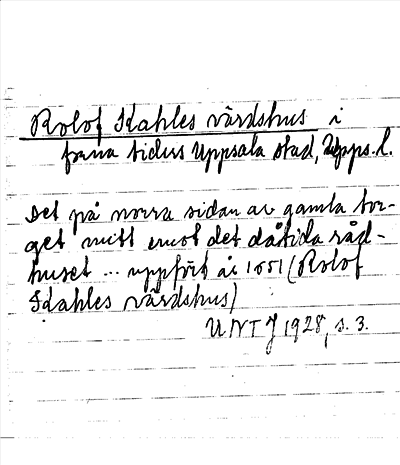 Rolof Kahles värdshus i
förra tidens Uppsala stad, Upps. l.
Det på norra sidan av gamla tor-
get mitt emot det dåtida råd-
huset ... uppfört år 1651 (Rolof
Kahles värdshus)
UNTJ 1928, s. 3.